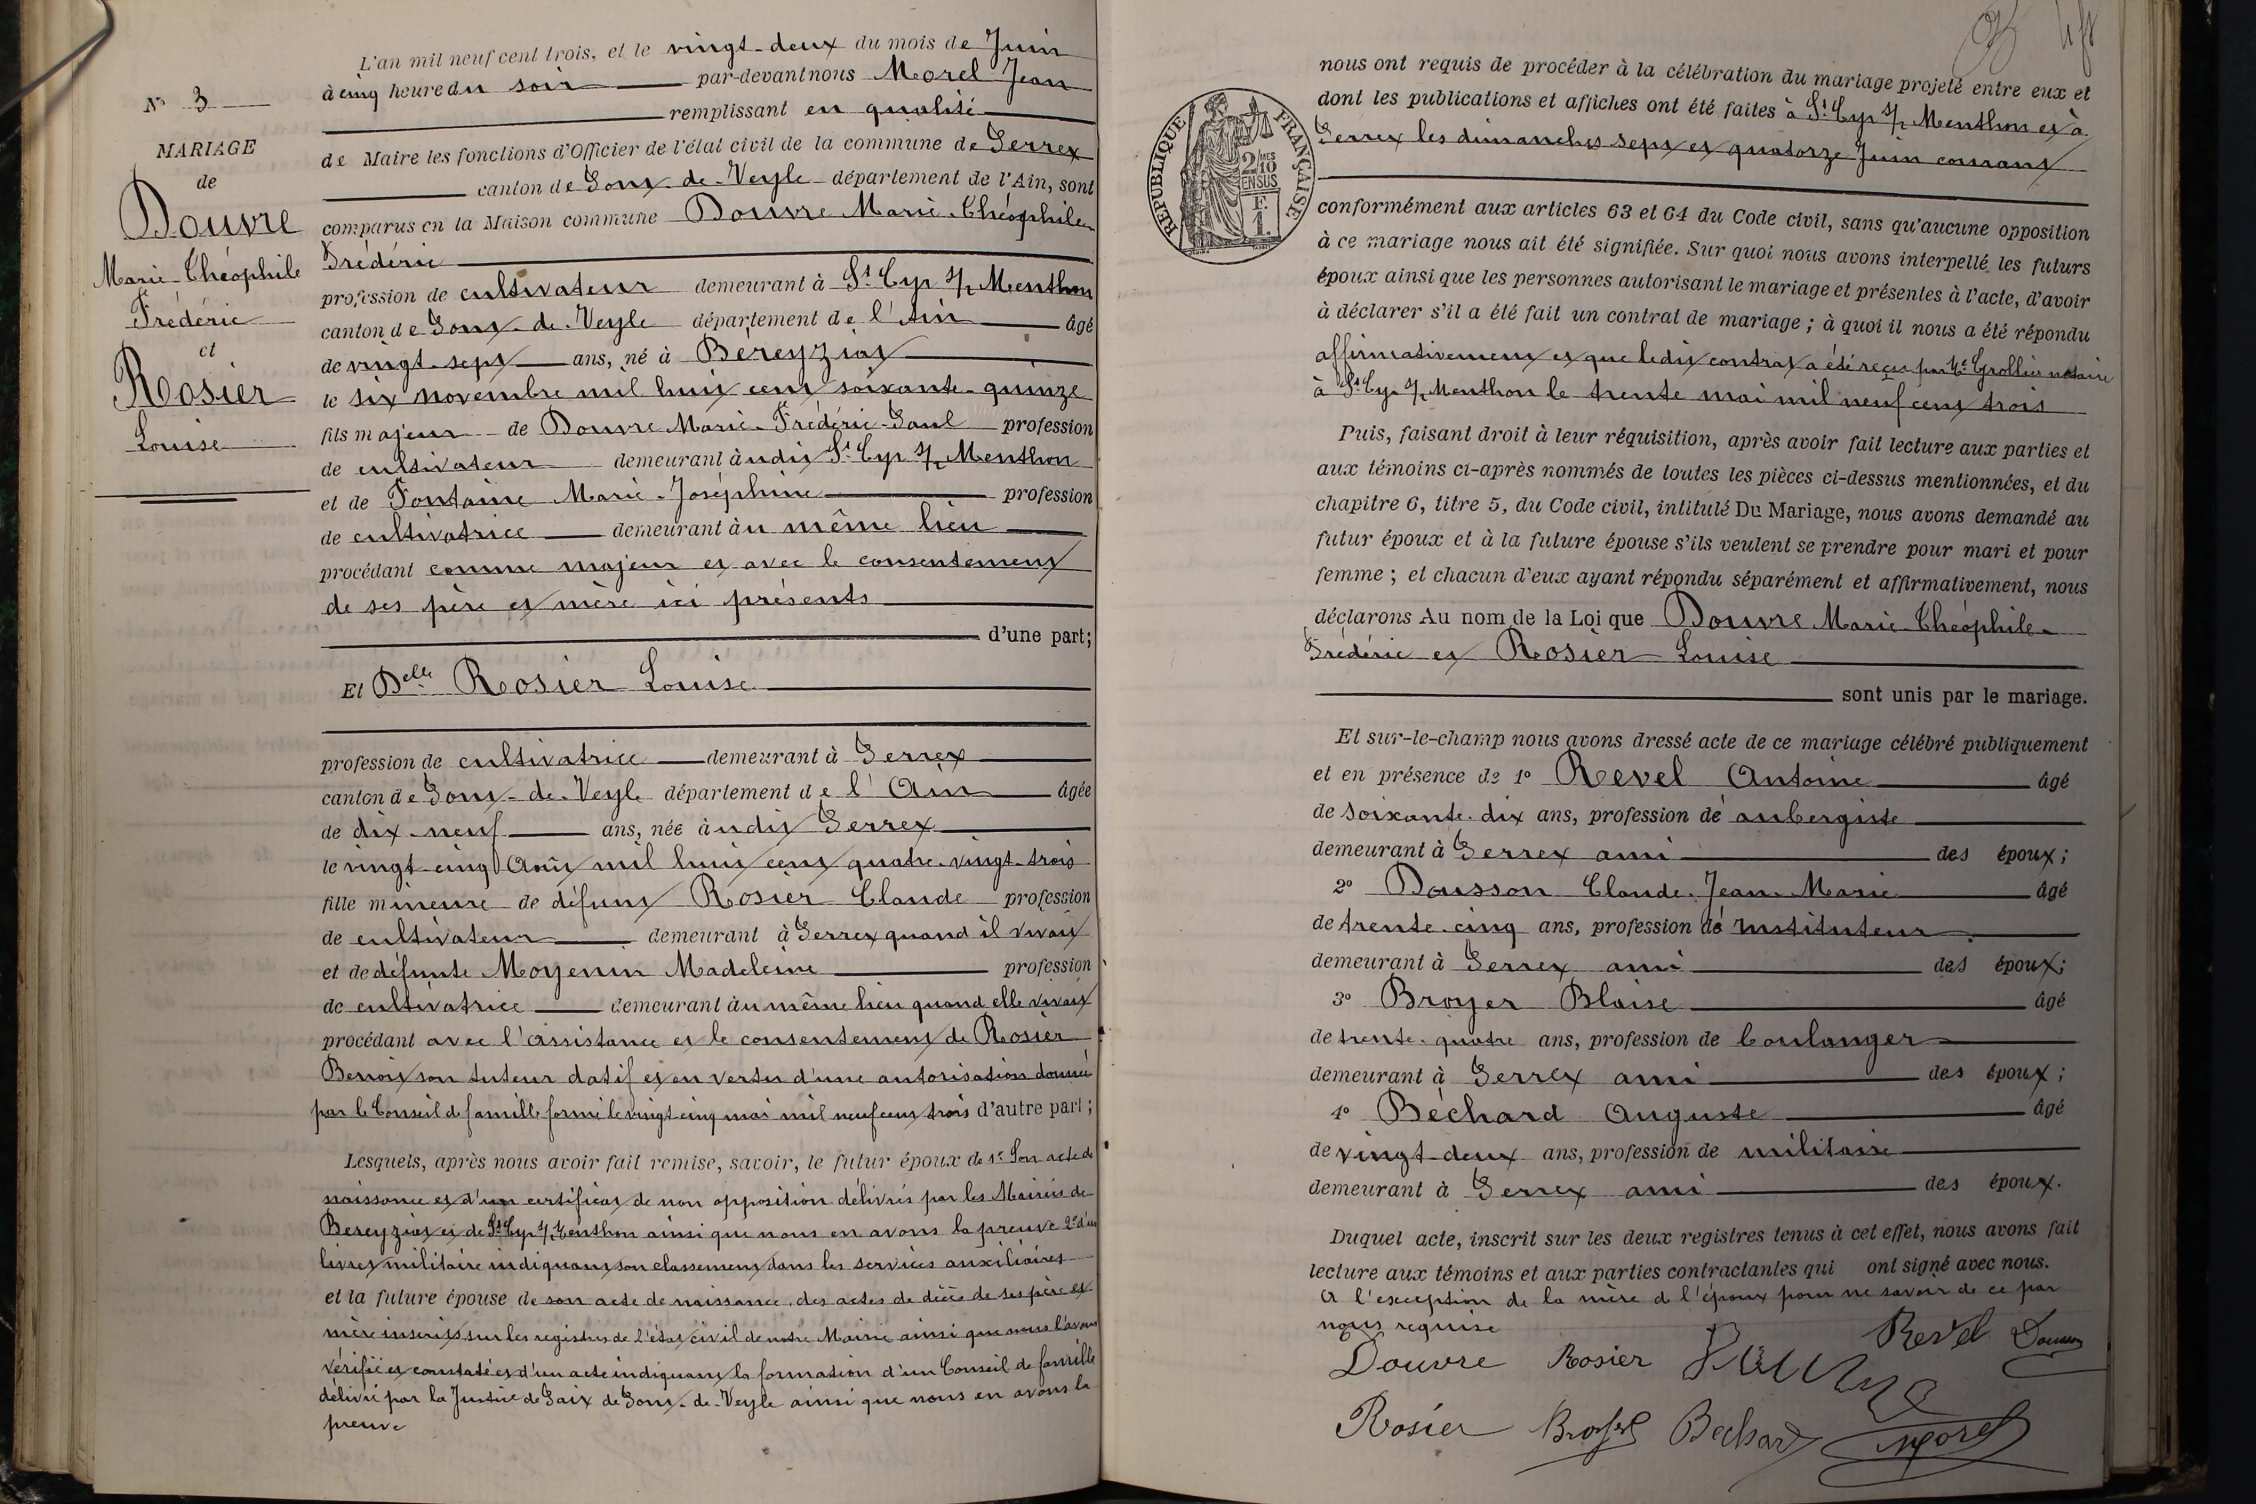 N° 3
MARIAGE
de
Douvre
Marie-Théophile
Frédéric
et
Rosier
Louise
L'an mil neuf cent trois, et le vingt-deux du mois de Juin
à cinq heure du soir par-devant nous Morel Jean
remplissant en qualité
de Maire les fonctions d'Officier de l'état civil de la commune de Perrex
canton de Pont-de-Veyle département de l'Ain, sont
comparus en la Maison commune Douvre Marie-Théophile
Frédéric
profession de cultivateur demeurant à St Cyr s/ Menthon
canton de Pont-de-Veyle département de l'Ain âgé
de vingt-sept ans, né à Béreyziat
le six novembre mil huit cent soixante-quinze
fils majeur de Douvre Marie-Frédéric-Paul profession
de cultivateur demeurant àudit St Cyr s/ Menthon
et de Fontaine Marie-Joséphine profession
de cultivatrice demeurant àu même lieu
procédant comme majeur et avec le consentement
de ses père et mère ici présents
d'une part;
Et Delle Rosier Louise
profession de cultivatrice demeurant à Perrex
canton de Pont-de-Veyle département de l'Ain âgée
de dix-neuf ans, née àudit Perrex
le vingt-cinq Août mil huit cent quatre-vingt-trois
fille mineure de défunt Rosier Claude profession
de cultivateur demeurant à Perrex quand il vivait
et de défunte Moyenin Madeleine profession
de cultivatrice demeurant àu même lieu quand elle vivait
procédant avec l'assistance et le consentement de Rosier
Benoit son tuteur datif et en vertu d'une autorisation donnée
par le Conseil de famille formé le vingt-cinq mai mil neuf cent trois d'autre part;
Lesquels, après nous avoir fait remise, savoir, le futur époux de 1° Son acte de
naissance et d'un certificat de non opposition délivrés par les Mairies de
Bereyziat et de St Cyr s/ Menthon ainsi que nous en avons la preuve 2° d'un
livret militaire indiquant son classement dans les services auxiliaires
et la future épouse de son acte de naissance, des actes de décès de ses père et
mère inscrits sur les registres de l'état civil de notre Mairie ainsi que nous l'avons
vérifié et constaté et d'un acte indiquant la formation d'un Conseil de famille
délivré par la Justice de Paix de Pont-de-Veyle ainsi que nous en avons la
preuve
RÉPUBLIQUE FRANÇAISE
2/10 EN SUS
F. 1.
nous ont requis de procéder à la célébration du mariage projeté entre eux et
dont les publications et affiches ont été faites à St Cyr s/ Menthon et à
Perrex les dimanches sept et quatorze Juin courant
conformément aux articles 63 et 64 du Code civil, sans qu'aucune opposition
à ce mariage nous ait été signifiée. Sur quoi nous avons interpellé les futurs
époux ainsi que les personnes autorisant le mariage et présentes à l'acte, d'avoir
à déclarer s'il a été fait un contrat de mariage; à quoi il nous a été répondu
affirmativement et que ledit contrat a été reçu par Me Grollier notaire
à St Cyr s/ Menthon le trente mai mil neuf cent trois
Puis, faisant droit à leur réquisition, après avoir fait lecture aux parties et
aux témoins ci-après nommés de toutes les pièces ci-dessus mentionnées, et du
chapitre 6, titre 5, du Code civil, intitulé Du Mariage, nous avons demandé au
futur époux et à la future épouse s'ils veulent se prendre pour mari et pour
femme; et chacun d'eux ayant répondu séparément et affirmativement, nous
déclarons Au nom de la Loi que Douvre Marie-Théophile-
Frédéric et Rosier Louise
sont unis par le mariage.
Et sur-le-champ nous avons dressé acte de ce mariage célébré publiquement
et en présence de 1° Revel Antoine âgé
de soixante-dix ans, profession de aubergiste
demeurant à Perrex ami des époux;
2° Dousson Claude-Jean-Marie âgé
de trente-cinq ans, profession de instituteur
demeurant à Perrex ami des époux;
3° Broyer Blaise âgé
de trente-quatre ans, profession de boulanger
demeurant à Perrex ami des époux;
4° Béchard Auguste âgé
de vingt-deux ans, profession de militaire
demeurant à Perrex ami des époux.
Duquel acte, inscrit sur les deux registres tenus à cet effet, nous avons fait
lecture aux témoins et aux parties contractantes qui ont signé avec nous.
à l'exception de la mère de l'époux pour ne savoir de ce par
nous requise
Douvre Rosier Douvre Revel Dousson
Rosier Broyer Bechard Morel